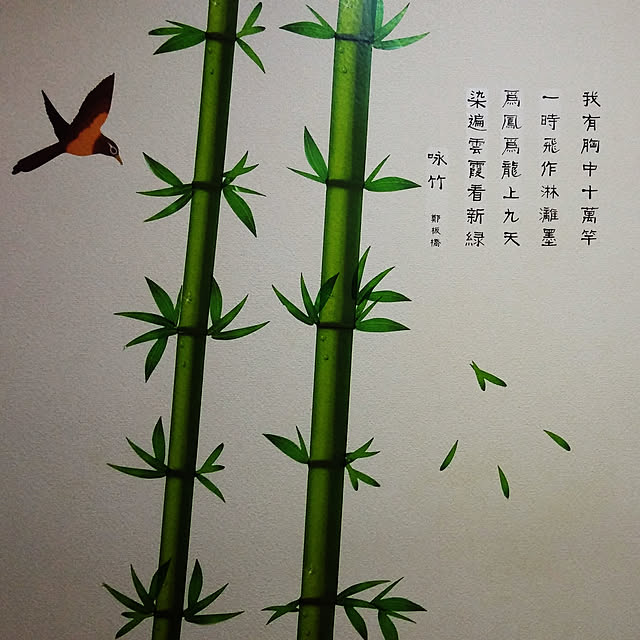 我有胸中十萬竿
一時飛作淋灕墨
為鳳為龍上九天
染遍雲霞看新綠
咏竹
鄭板橋